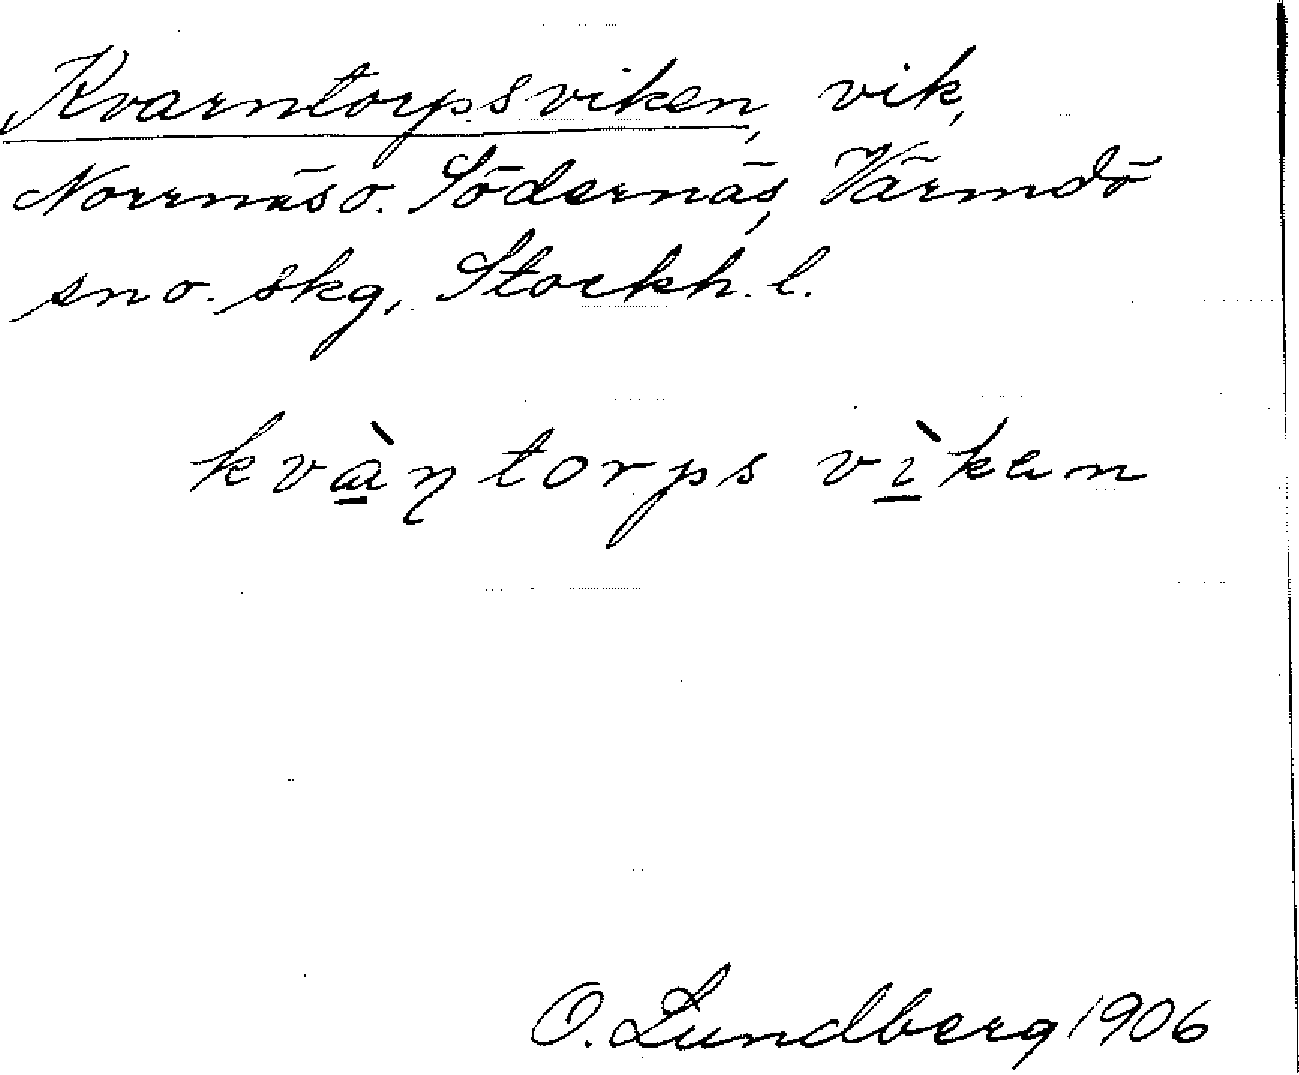 Kvarntorpsviken, vik,
Norrnäs o. Södernäs, Värmdö
sn o. skg, Stockh. l.
kvàṇtorps vìken
O. Lundberg 1906